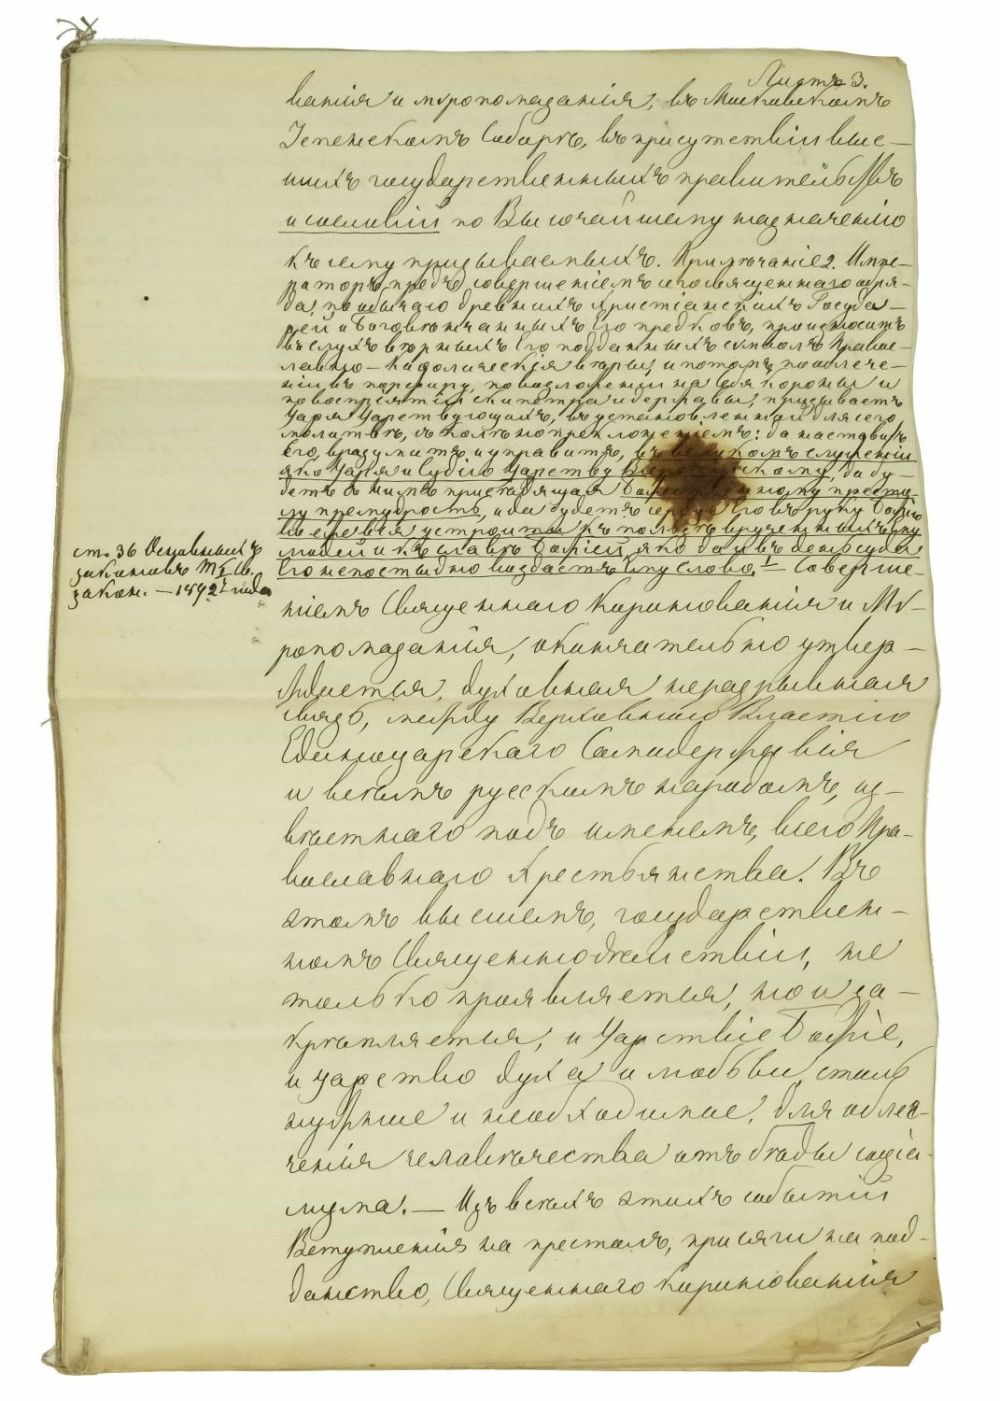 Листъ 3.
ванія и мѵропомазанія, въ Московскомъ
Успенскомъ Соборѣ, въ присутствіи выс-
шихъ государственныхъ правительствъ
и сословій по Высочайшему назначенію
къ сему призываемыхъ. Примѣчаніе 2. Импе-
раторъ, предъ совершеніемъ сего священнаго обря-
да, по обычаю древнихъ христіанскихъ Госуда-
рей и Боговѣнчанныхъ Его предковъ, произноситъ
въ слухъ вѣрныхъ Его подданныхъ символъ Право-
славно-Каѳолическія вѣры, и потомъ, по облаче-
ніи въ порфиру, по возложеніи на себя короны и
по воспріятіи скипетра и державы, призываетъ
Царя Царствующихъ, въ установленной для сего
молитвѣ, съ колѣнопреклоненіемъ: да наставитъ
Его, вразумитъ и управитъ, въ великомъ служеніи
яко Царя и Судію Царству Всероссійскому, да бу-
детъ съ нимъ присѣдящая Божественному престо-
лу премудрость, и да будетъ сердце Его въ руку Божію
во еже вся устроити къ пользѣ врученныхъ ему
людей и къ славѣ Божіей, яко да и въ день суда
Его непостыдно воздастъ ему слово. Соверше-
ст. 36 Основныхъ
законовъ Т. I Св.
закон. — 1892 года
ніемъ Священнаго Коронованія и Мѵ-
ропомазанія, окончательно утвер-
ждается, духовная неразрывная
связь, между Верховною Властію
Единоцарскаго Самодержавія
и всѣмъ русскимъ народомъ, из-
вѣстнаго подъ именемъ, всего Пра-
вославнаго Крестьянства. Въ
этомъ высшемъ, государствен-
номъ Священнодѣйствіи, не
только проявляется, но и за-
крѣпляется, и Царствіе Божіе,
и царство духа и любви, столь
нужные и необходимые, для облег-
ченія человѣчества отъ бѣды соціа-
лизма. — Изъ всѣхъ этихъ событій
Вступленія на престолъ, присяги на под-
данство, Священнаго Коронованія